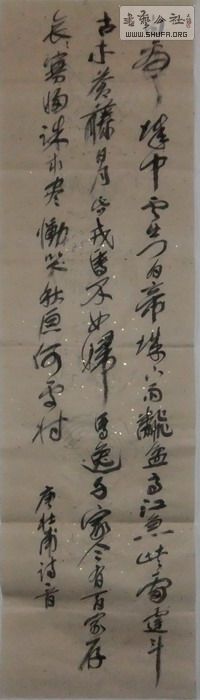 書藝公社
WWW.SHUFA.ORG
白帝城中云出门白帝城下雨翻盆高江急峡雷霆斗
古木苍藤日月昏戎馬不如歸馬逸千家今有百家存
哀哀寡婦誅求尽慟哭秋原何处村
唐杜甫诗